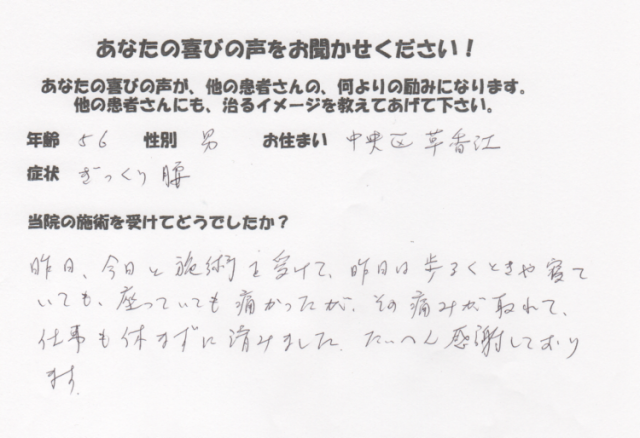 あなたの喜びの声をお聞かせください！
あなたの喜びの声が、他の患者さんの、何よりの励みになります。
他の患者さんにも、治るイメージを教えてあげて下さい。
年齢 56 性別 男 お住まい 中央区 草香江
症状 ぎっくり腰
当院の施術を受けてどうでしたか？
昨日、今日と施術を受けて、昨日は歩るくときや寝て
いても、座っていても痛かったが、その痛みが取れて、
仕事も休まずに済みました。たいへん感謝しており
ます。